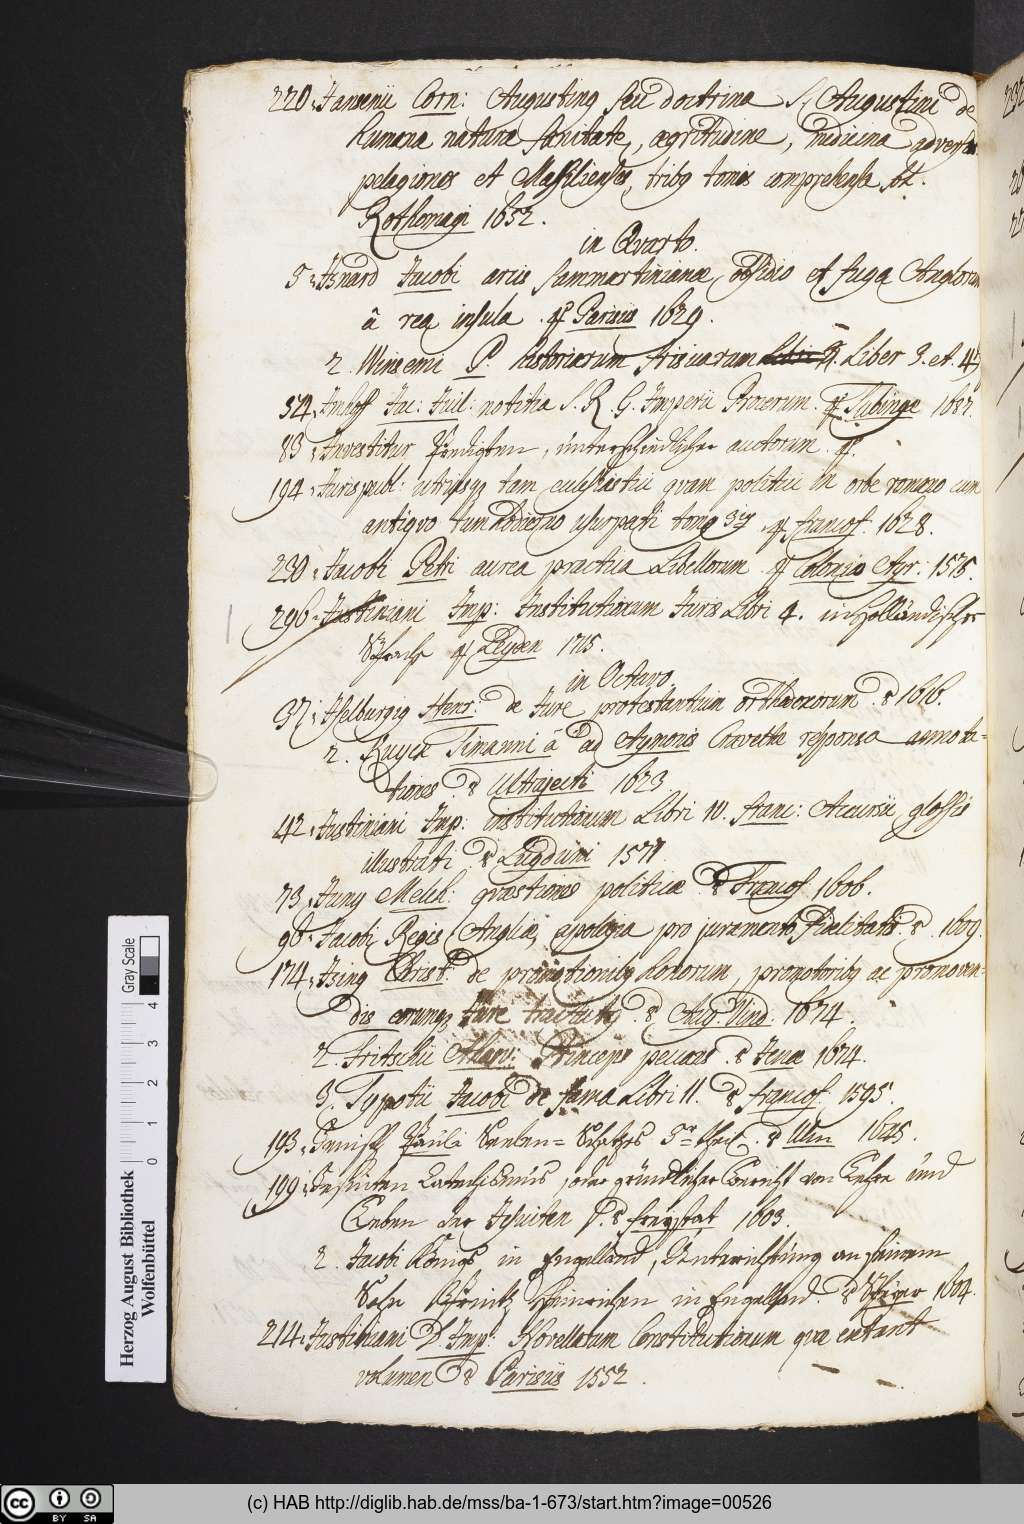 220. Jansenii Corn: Augustinus seu doctrina S. Augustini de
humana natura sanitate, ægritudine, medicina adversus
pelagianos et Massilienses, tribus tomis comprehensa fol.
Rothomagi 1652.
in Quarto.
5. Isnard Jacobi arcis sammartinianæ obsidio et fuga Anglorum
â rea insula. 4° Parisiis 1629.
2. Winsemi P. historiarum frisicarum Liber 3. et. 4.
54. Imhoff Jac: Wil: notitia S. R. G. Imperii Procerum. 4° Tübingæ 1687.
83. Investitur Predigten, unterschiedlicher auctorum. 4°
194. Juris publ: utriusq tam eclesiastici quam politici in orbe romano cum
antiquo tum hodierno usurpati tomus 3us 4° francof. 1628.
230. Jacobi Petri aurea practica Libellorum 4° Coloniæ Agr: 1575.
296. Justiniani Imp: Institutionum Juris Libri 4. in Holländischer
Sprache 4° Leyden 1715.
in Octavo.
37. Iselburgig Henr: de Jure protestantium orthodoxorum. 8 1616.
2. Timanni â ad Aymonis Cravettæ responsa annota-
tiones. 8 Ultrajecti 1623
42. Justiniani Imp: institutionum Libri IV. franc: Accursii glossis
illustrati. 8 Lugduni 1571
73. Junius Melch: quæstiones politicæ. 8 Francof. 1606.
98. Jacobi Regis Angliæ, apologia pro juramento fidelitatis. 8. 1609.
174. Ising Christ: de promotionibus honorum, promotoribus ac promoven-
dis eorumq Jure tractatus. 8 Aug. Vind. 1624.
2. Fritschii Ahasv: Princeps peccans. 8 Jenæ 1674.
3. Typotii Jacobi de fama Libri II. 8 francof. 1595.
193. Jenisch Pauli Seelen-Schatzes 5r theil. 8 Ulm 1645.
199. Jesuiten Catechismus, oder gründlicher Bericht von Lehre und
Leben der Jesuiten P. 8 freystat 1603.
2. Jacobi Königs in Engelland, Unterrichtung an seinem
Sohn Printz Heinrichen in Engelland. 8 Speyer 1604.
214. Justiniani D. Imp: Novellarum Constitutionum quæ extant
volumen 8 Parisiis 1552.
Herzog August Bibliothek
Wolfenbüttel
Gray Scale
0 1 2 3 4
cc BY SA
(c) HAB http://diglib.hab.de/mss/ba-1-673/start.htm?image=00526